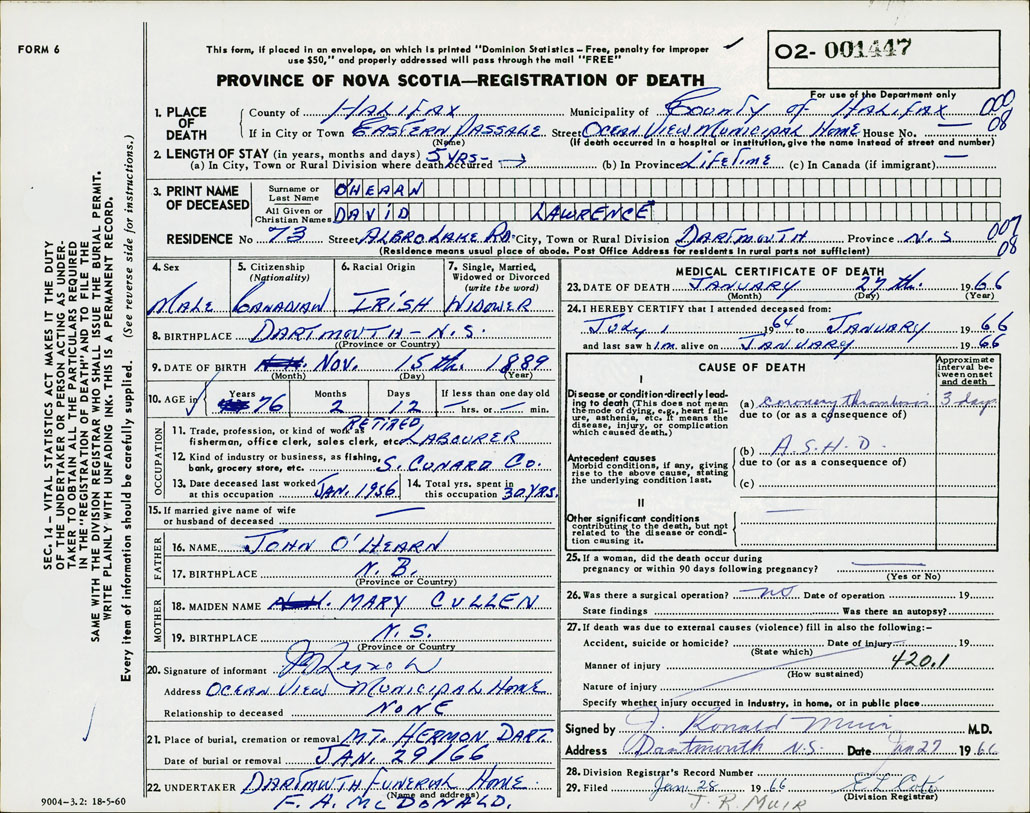 FORM 6
This form, if placed in an envelope, on which is printed "Dominion Statistics – Free, penalty for improper
use $50," and properly addressed will pass through the mail "FREE"
O2- 001447
PROVINCE OF NOVA SCOTIA—REGISTRATION OF DEATH
For use of the Department only
1. PLACE OF DEATH
County of HALIFAX Municipality of COUNTY OF HALIFAX 000
If in City or Town EASTERN PASSAGE Street OCEAN VIEW MUNICIPAL HOME House No. — 08
(Name) (If death occurred in a hospital or institution, give the name instead of street and number)
2. LENGTH OF STAY (in years, months and days)
(a) In City, Town or Rural Division where death occurred 5 YRS- → (b) In Province LIFETIME (c) In Canada (if immigrant) —
3. PRINT NAME OF DECEASED
Surname or Last Name O'HEARN
All Given or Christian Names DAVID LAWRENCE
RESIDENCE No 73 Street ALBRO LAKE RD City, Town or Rural Division DARTMOUTH Province N.S 007
(Residence means usual place of abode. Post Office Address for residents in rural parts not sufficient) 08
4. Sex MALE
5. Citizenship (Nationality) CANADIAN
6. Racial Origin IRISH
7. Single, Married, Widowed or Divorced (write the word) WIDOWER
8. BIRTHPLACE DARTMOUTH - N.S.
(Province or Country)
9. DATE OF BIRTH NOV. 15th. 1889
(Month) (Day) (Year)
10. AGE in Years 76 Months 2 Days 12 If less than one day old — hrs. or — min.
OCCUPATION
11. Trade, profession, or kind of work as fisherman, office clerk, sales clerk, etc. RETIRED LABOURER
12. Kind of industry or business, as fishing, bank, grocery store, etc. S. CUNARD CO.
13. Date deceased last worked at this occupation JAN. 1956
14. Total yrs. spent in this occupation 30 YRS.
15. If married give name of wife or husband of deceased —
FATHER
16. NAME JOHN O'HEARN
17. BIRTHPLACE N.B.
(Province or Country)
MOTHER
18. MAIDEN NAME MARY CULLEN
19. BIRTHPLACE N.S.
(Province or Country)
20. Signature of informant
Address OCEAN VIEW MUNICIPAL HOME
Relationship to deceased NONE
21. Place of burial, cremation or removal MT. HERMON DART.
Date of burial or removal JAN. 29/66
22. UNDERTAKER DARTMOUTH FUNERAL HOME
(Name and address)
F. A. McDONALD.
MEDICAL CERTIFICATE OF DEATH
23. DATE OF DEATH JANUARY 27th. 1966
(Month) (Day) (Year)
24. I HEREBY CERTIFY that I attended deceased from:
July 1 1964 to JANUARY 1966
and last saw him alive on JANUARY 1966
CAUSE OF DEATH
Approximate interval between onset and death
I
Disease or condition directly leading to death (This does not mean the mode of dying, e.g., heart failure, asthenia, etc. It means the disease, injury, or complication which caused death.)
(a) coronary thrombosis 3 days
due to (or as a consequence of)
Antecedent causes
Morbid conditions, if any, giving rise to the above cause, stating the underlying condition last.
(b) A.S.H.D.
due to (or as a consequence of)
(c)
II
Other significant conditions contributing to the death, but not related to the disease or condition causing it. —
25. If a woman, did the death occur during pregnancy or within 90 days following pregnancy? —
(Yes or No)
26. Was there a surgical operation? no Date of operation 19
State findings Was there an autopsy?
27. If death was due to external causes (violence) fill in also the following:-
Accident, suicide or homicide? Date of injury 19
(State which) 420.1
Manner of injury
(How sustained)
Nature of injury
Specify whether injury occurred in Industry, in home, or in public place
Signed by J. Ronald Muir M.D.
Address Dartmouth N.S. Date Jan 27 1966
28. Division Registrar's Record Number
29. Filed Jan. 28 1966 E L Coté
(Division Registrar)
J. R. MUIR
SEC. 14 – VITAL STATISTICS ACT MAKES IT THE DUTY
OF THE UNDERTAKER OR PERSON ACTING AS UNDER-
TAKER TO OBTAIN ALL THE PARTICULARS REQUIRED
IN THE "REGISTRATION OF DEATH" AND TO FILE THE
SAME WITH THE DIVISION REGISTRAR WHO SHALL ISSUE THE BURIAL PERMIT.
WRITE PLAINLY WITH UNFADING INK. THIS IS A PERMANENT RECORD.
Every item of information should be carefully supplied. (See reverse side for instructions.)
9004-3.2: 18-5-60